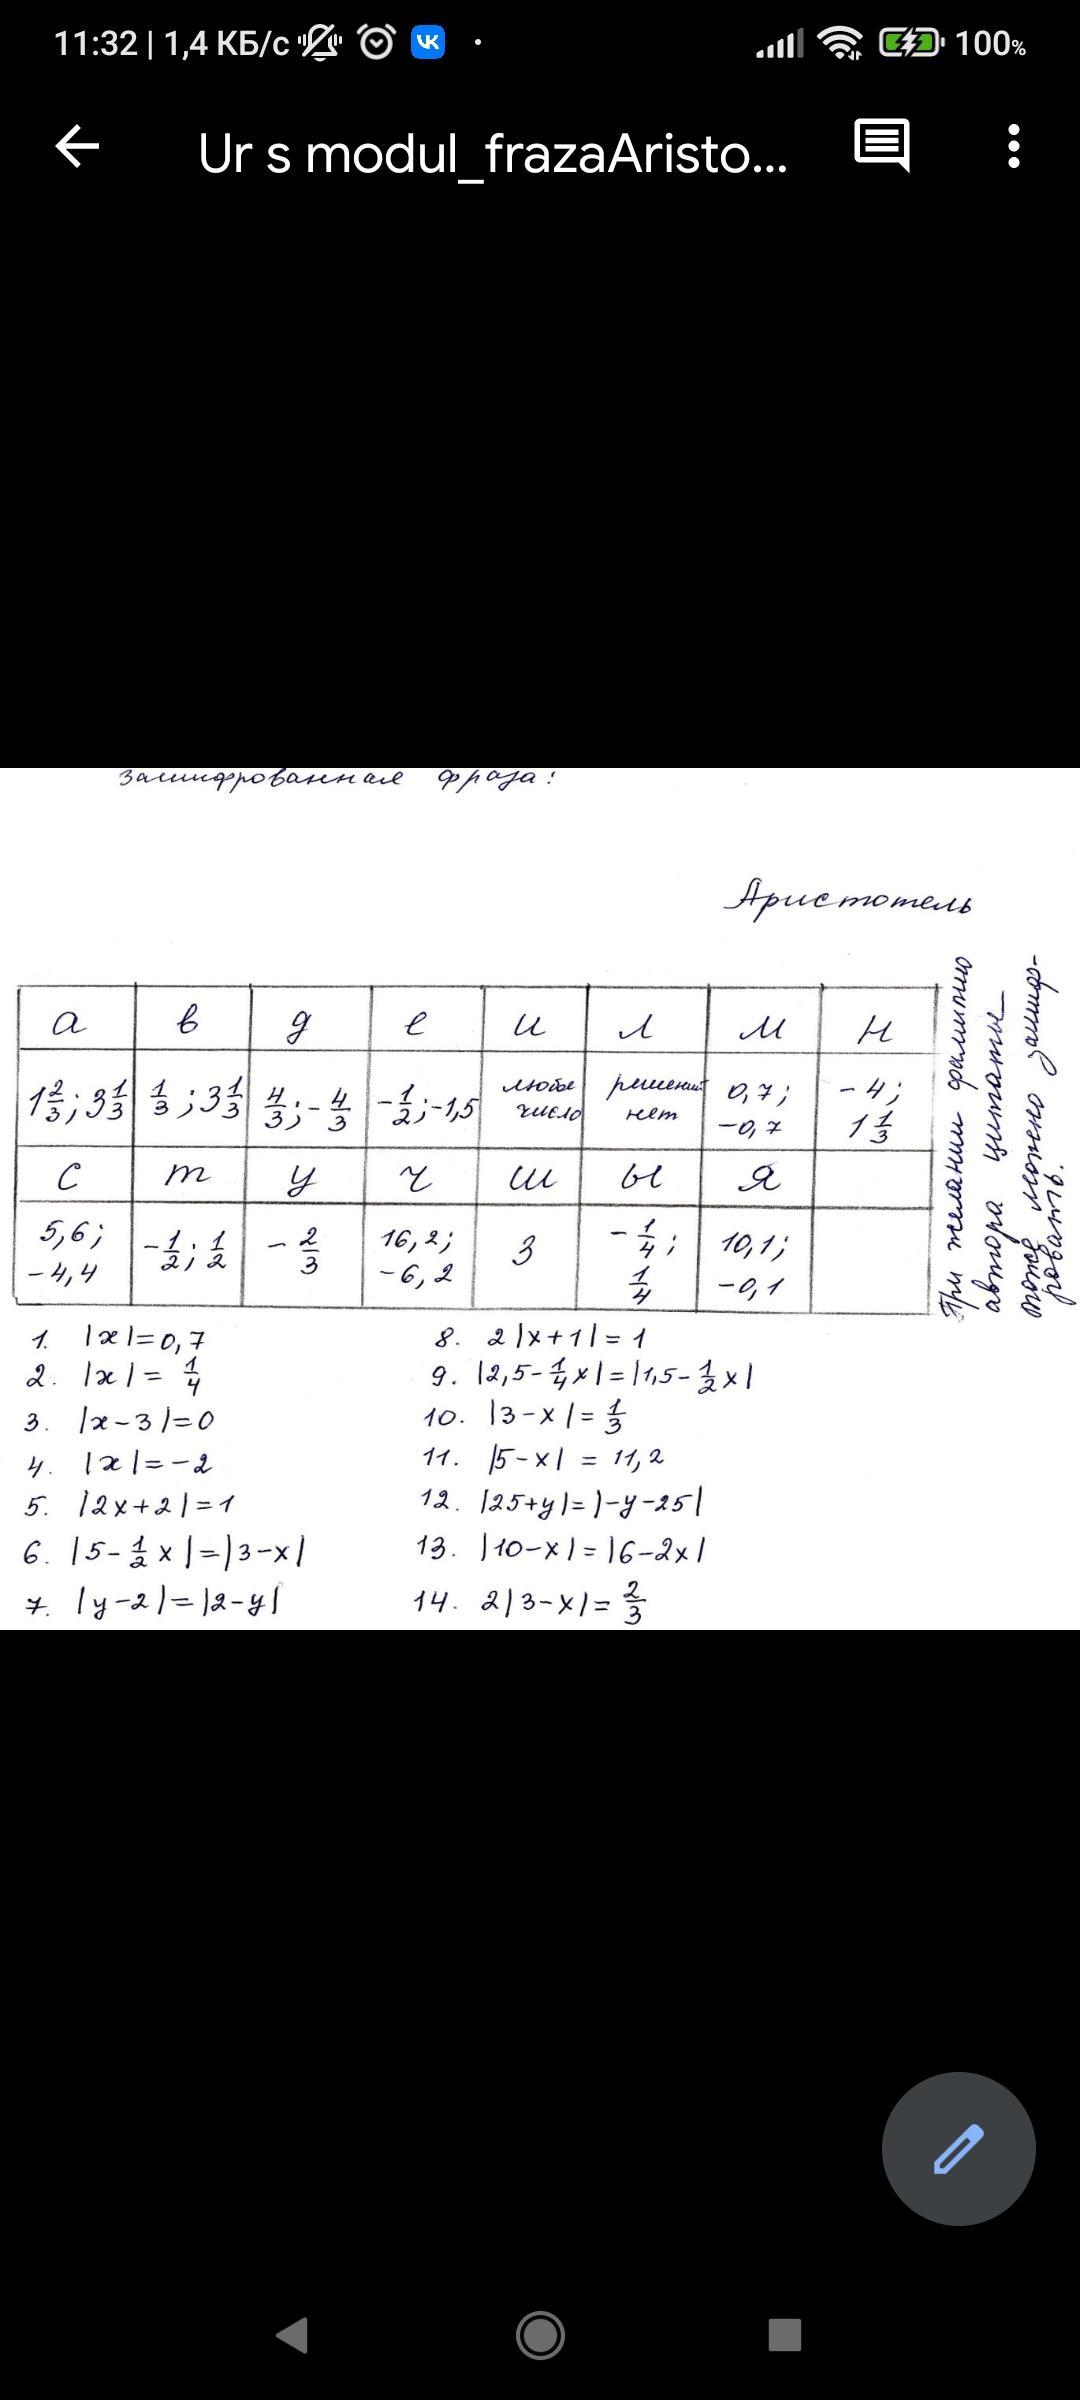 11:32 | 1,4 КБ/с 100%
Ur s modul_frazaAristo...
Зашифрованная фраза:
Аристотель
а в д е и л м н
1 2/3; 3 1/3 1/3; 3 1/3 4/3; -4/3 -1/2; -1,5 любое число решений нет 0,7; -0,7 -4; 1 1/3
с т у ч ш ы я
5,6; -4,4 -1/2; 1/2 -2/3 16,2; -6,2 3 -1/4; 1/4 10,1; -0,1
При желании фамилию
автора цитаты
тоже можно зашиф-
ровать.
1. |x|=0,7
2. |x|= 1/4
3. |x-3|=0
4. |x|=-2
5. |2x+2|=1
6. |5-1/2 x|=|3-x|
7. |y-2|=|2-y|
8. 2|x+1|=1
9. |2,5-1/4 x|=|1,5-1/2 x|
10. |3-x|=1/3
11. |5-x| = 11,2
12. |25+y|=|-y-25|
13. |10-x|=|6-2x|
14. 2|3-x|=2/3